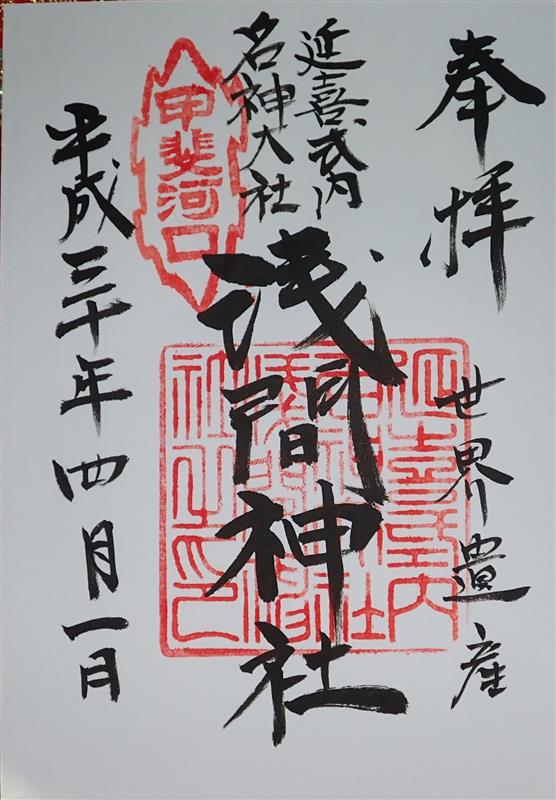 奉拝
世界遺産
延喜式内
名神大社
浅間神社
甲斐河口
平成三十年四月一日